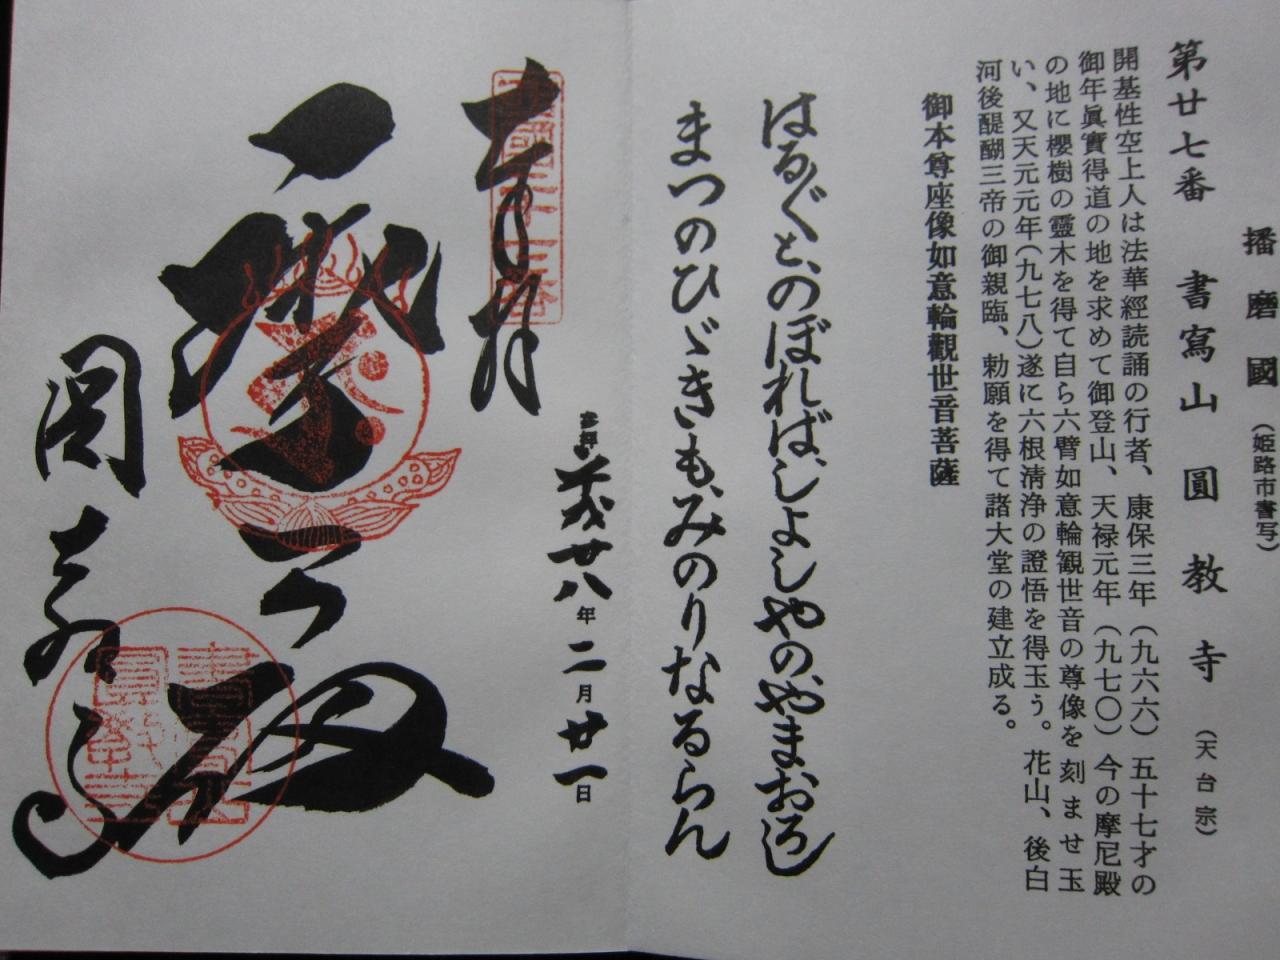 播磨國（姫路市書写）
第廿七番　書寫山圓教寺（天台宗）
開基性空上人は法華經読誦の行者、康保三年（九六六）五十七才の
御年眞實得道の地を求めて御登山、天禄元年（九七〇）今の摩尼殿
の地に櫻樹の靈木を得て自ら六臂如意輪観世音の尊像を刻ませ玉
い、又天元元年（九七八）遂に六根淸浄の證悟を得玉う。花山、後白
河後醍醐三帝の御親臨、勅願を得て諸大堂の建立成る。
御本尊座像如意輪觀世音菩薩
はるぐと、のぼれば、しよしやの、やまおろし
まつのひゞきも、みのりなるらん
西國二十七番
奉拝
参拝 平成廿八年二月廿一日
摩尼殿
圓教寺